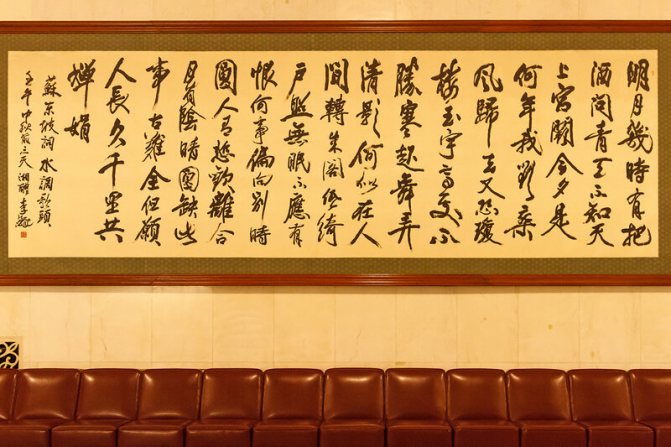 明月幾時有把
酒問青天不知天
上宮闕今夕是
何年我欲乘
風歸去又恐瓊
樓玉宇高處不
勝寒起舞弄
清影何似在人
間轉朱閣低綺
戶照無眠不應有
恨何事偏向別時
圓人有悲歡離合
月有陰晴圓缺此
事古難全但願
人長久千里共
嬋娟
蘇東坡詞水調歌頭
壬午中秋前三天湘李